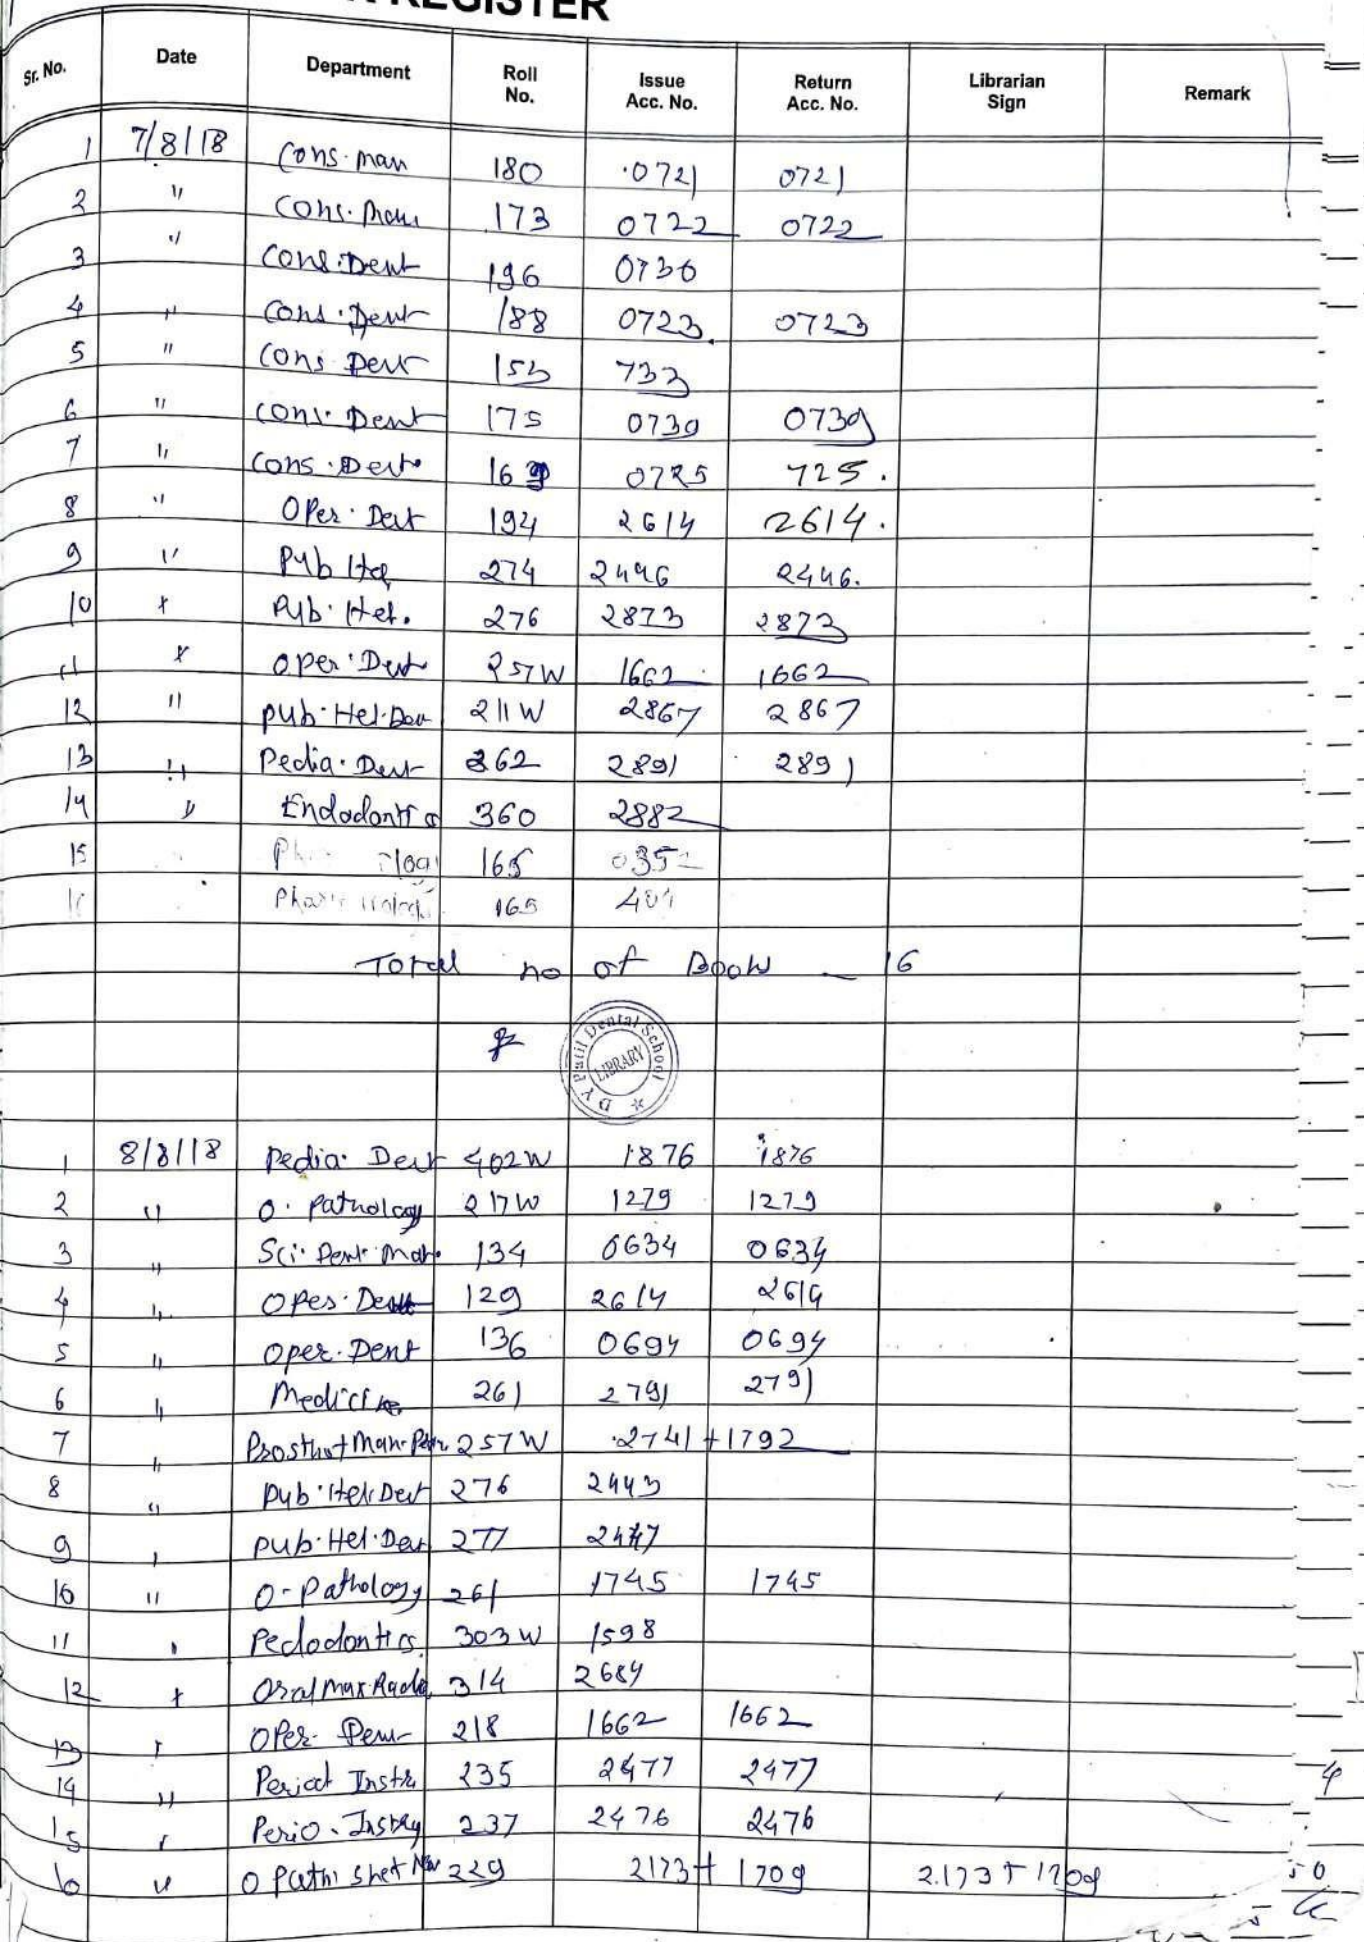 REGISTER
Sr. No. Date Department Roll No. Issue Acc. No. Return Acc. No. Librarian Sign Remark
1 7/8/18 Cons. man 180 0721 0721
2 " Cons. Man 173 0722 0722
3 " Cons. Dent 196 0736
4 " Cons. Dent 188 0723 0723
5 " Cons Dent 153 733
6 " Cons. Dent 175 0739 0739
7 " Cons. Dent 169 0725 725.
8 " Oper. Dent 194 2614 2614.
9 " Pub Hel 274 2446 2446.
10 " Pub. Hel. 276 2873 2873
11 " Oper. Dent 257W 1662 1662
12 " Pub. Hel. Den 211W 2867 2867
13 " Pedia. Dent 362 2891 2891
14 " Endodontics 360 2882
15 165 0352
165
Total no of Book _ 16
D Y Patil Dental School LIBRARY
1 8/8/18 Pedia. Dent 402W 1876 1876
2 " O. Pathology 217W 1279 1279
3 " Sci. Dent. Mat. 134 0634 0634
4 " Oper. Dent 129 2614 2614
5 " Oper. Dent 136 0694 0694
6 " Medicine 261 2791 2791
7 " 257W 2741 + 1792
8 " Pub. Hel. Dent 276 2443
9 " Pub. Hel. Den 277 2447
10 " O-Pathology 261 1745 1745
11 " Pedodontics 303W 1598
12 " Oral Max. Radio 314 2684
13 " Oper. Den 218 1662 1662
14 " Period Instr 235 2477 2477
15 " Perio. 237 2476 2476
16 " 229 2173 + 1709 2173 + 1709